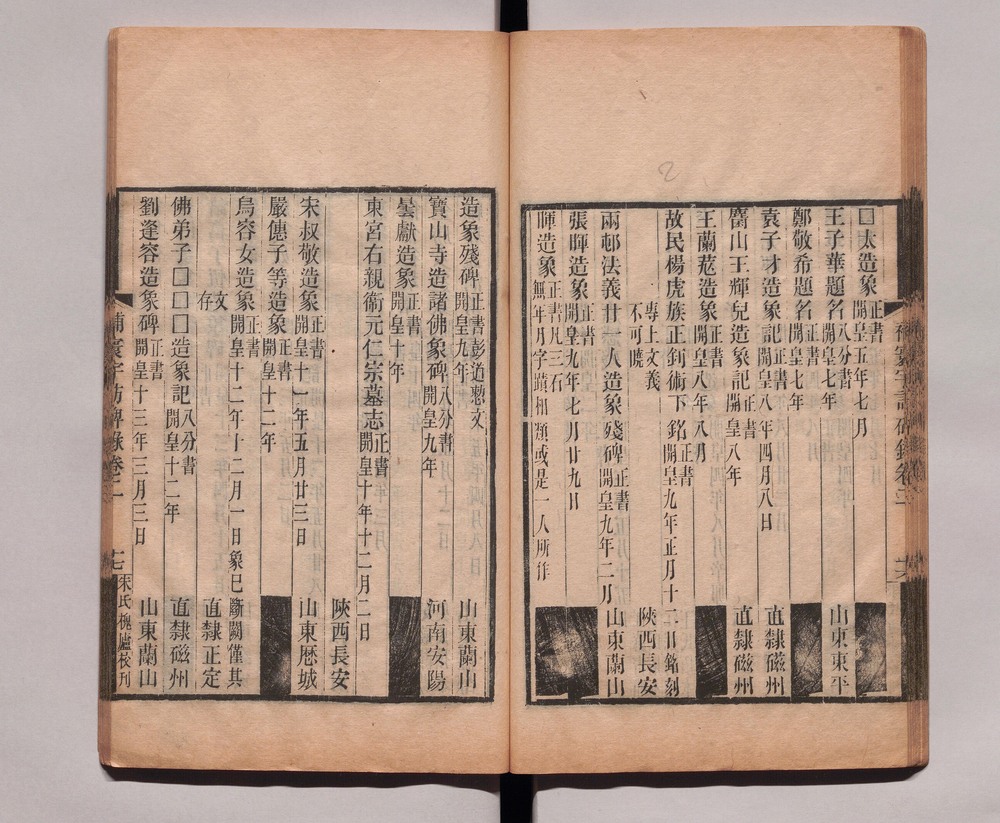 □太造象 正書 開皇五年七月
王子華題名 八分書 開皇七年 山東東平
鄭敬希題名 正書 開皇七年
袁子才造象記 正書 開皇八年四月八日 直隸磁州
王輝兒造象記 正書 開皇八年 直隸磁州
王蘭菀造象 正書 開皇八年八月
故民楊虎族正釗術下銘 正書 開皇九年正月十二日銘刻
專上文義不可曉 陝西長安
兩邨法義廿一人造象殘碑 正書 開皇九年二月 山東蘭山
張暉造象 正書 開皇九年七月廿九日
暉造象 正書凡三石 無年月字蹟相類或是一人所作
造象殘碑 正書彭道愸文 開皇九年 山東蘭山
寶山寺造諸佛象碑 八分書 開皇九年 河南安陽
曇獻造象 正書 開皇十年
東宮右親衞元仁宗墓志 正書 開皇十年十二月二日
陝西長安
宋叔敬造象 正書 開皇十一年五月廿三日 山東歷城
嚴僡子等造象 正書 開皇十二年
烏容女造象 正書 開皇十二年十二月一日象已斷闕僅其
文存 直隸正定
佛弟子□□□造象記 八分書 開皇十二年 直隸磁州
劉逢容造象碑 正書 開皇十三年三月三日 山東蘭山
補寰宇訪碑錄卷二 七 朱氏槐廬校刊